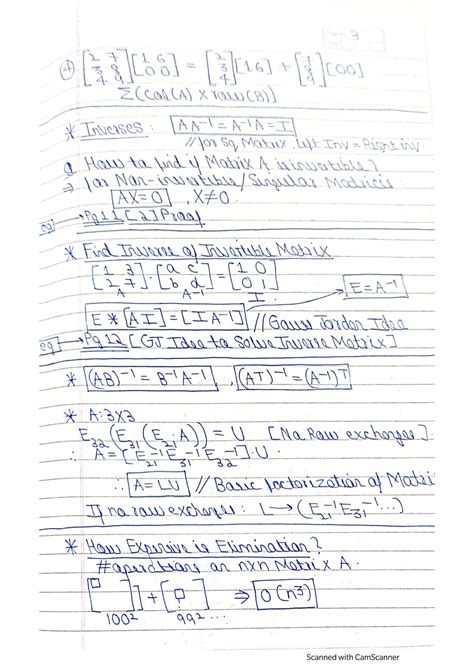 3
④ [2 7; 3 8; 4 9] [1 6; 0 0] = [2; 3; 4] [1 6] + [7; 8; 9] [0 0]
Σ(Col(A) x row(B))
* Inverses : AA⁻¹ = A⁻¹A = I
// for Sq. Matrix, left Inv = Right inv.
Q How to find if Matrix A is invertible?
⇒ for Non-invertible/Singular Matrices
AX=0 , X≠0.
eg → Pg 11 [2] Proof
* Find Inverse of Invertible Matrix
[1 3; 2 7] · [a c; b d] = [1 0; 0 1]
A A⁻¹ I
E = A⁻¹
E * [A I] = [I A⁻¹] // Gauss Jordan Idea
eg → Pg 12 [GJ Idea to Solve Inverse Matrix]
* (AB)⁻¹ = B⁻¹A⁻¹ , (AT)⁻¹ = (A⁻¹)ᵀ
* A: 3x3
E₃₂(E₃₁(E₂₁A)) = U [No Row exchanges]
∴ A = [E₂₁⁻¹E₃₁⁻¹E₃₂⁻¹]·U
∴ A = LU // Basic factorization of Matri
If no row exchange : L → (E₂₁⁻¹E₃₁⁻¹...)
* How Expensive is Elimination?
# operations on nxn Matrix A.
[ ] + [ ] ⇒ O(n³)
100² 99² ...
Scanned with CamScanner